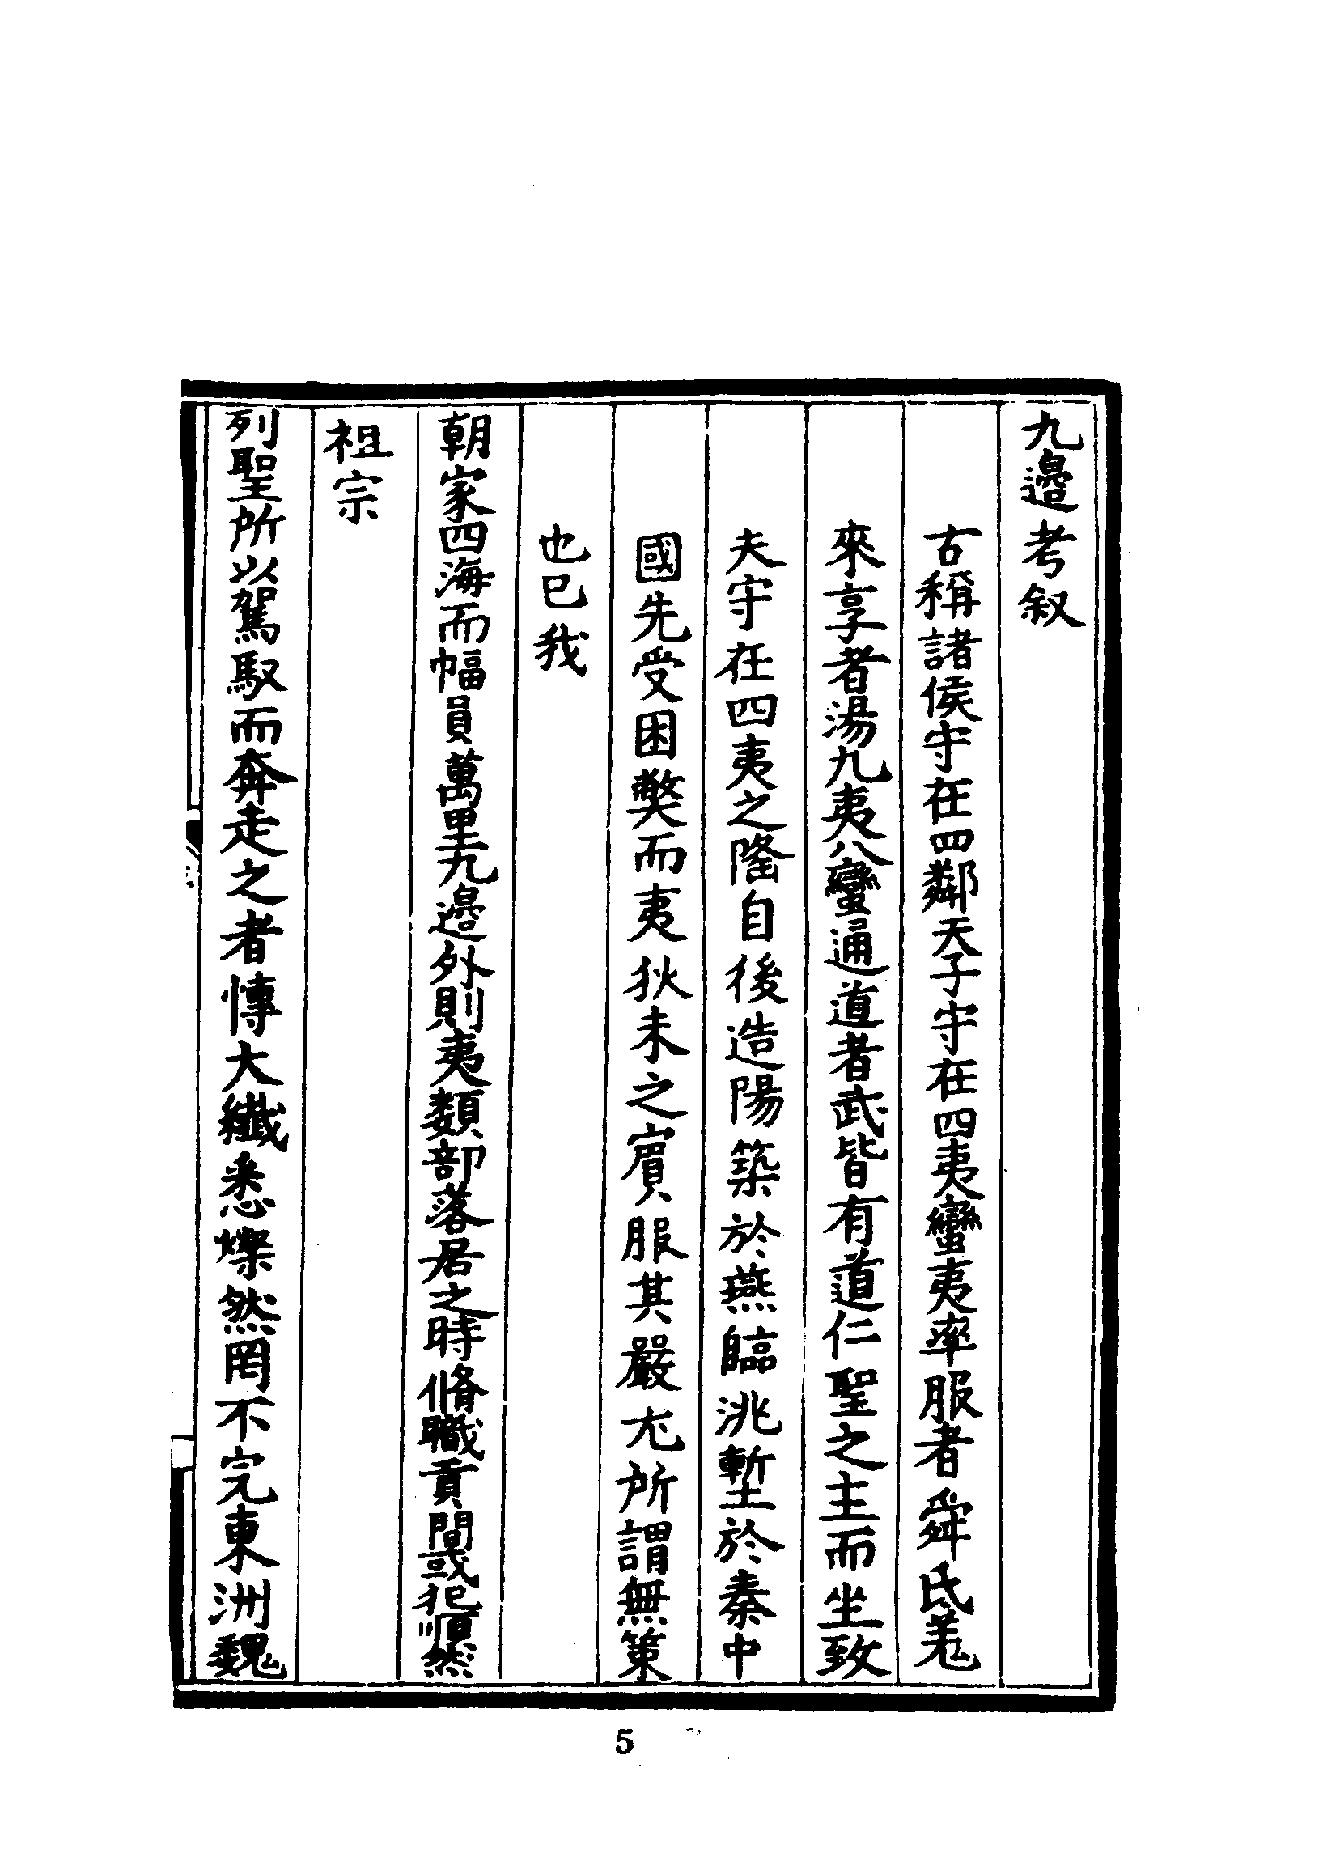 九邊考叙
古稱諸侯守在四鄰天子守在四夷蠻夷率服者舜氐羌
來享者湯九夷八蠻通道者武皆有道仁聖之主而坐致
夫守在四夷之隆自後造陽築於燕臨洮塹於秦中
國先受困獘而夷狄未之賓服其嚴尤所謂無策
也已我
朝家四海而幅員萬里九邊外則夷類部落居之時脩職貢間或犯順然
祖宗
列聖所以駕馭而奔走之者慱大纖悉燦然罔不完東洲魏
5